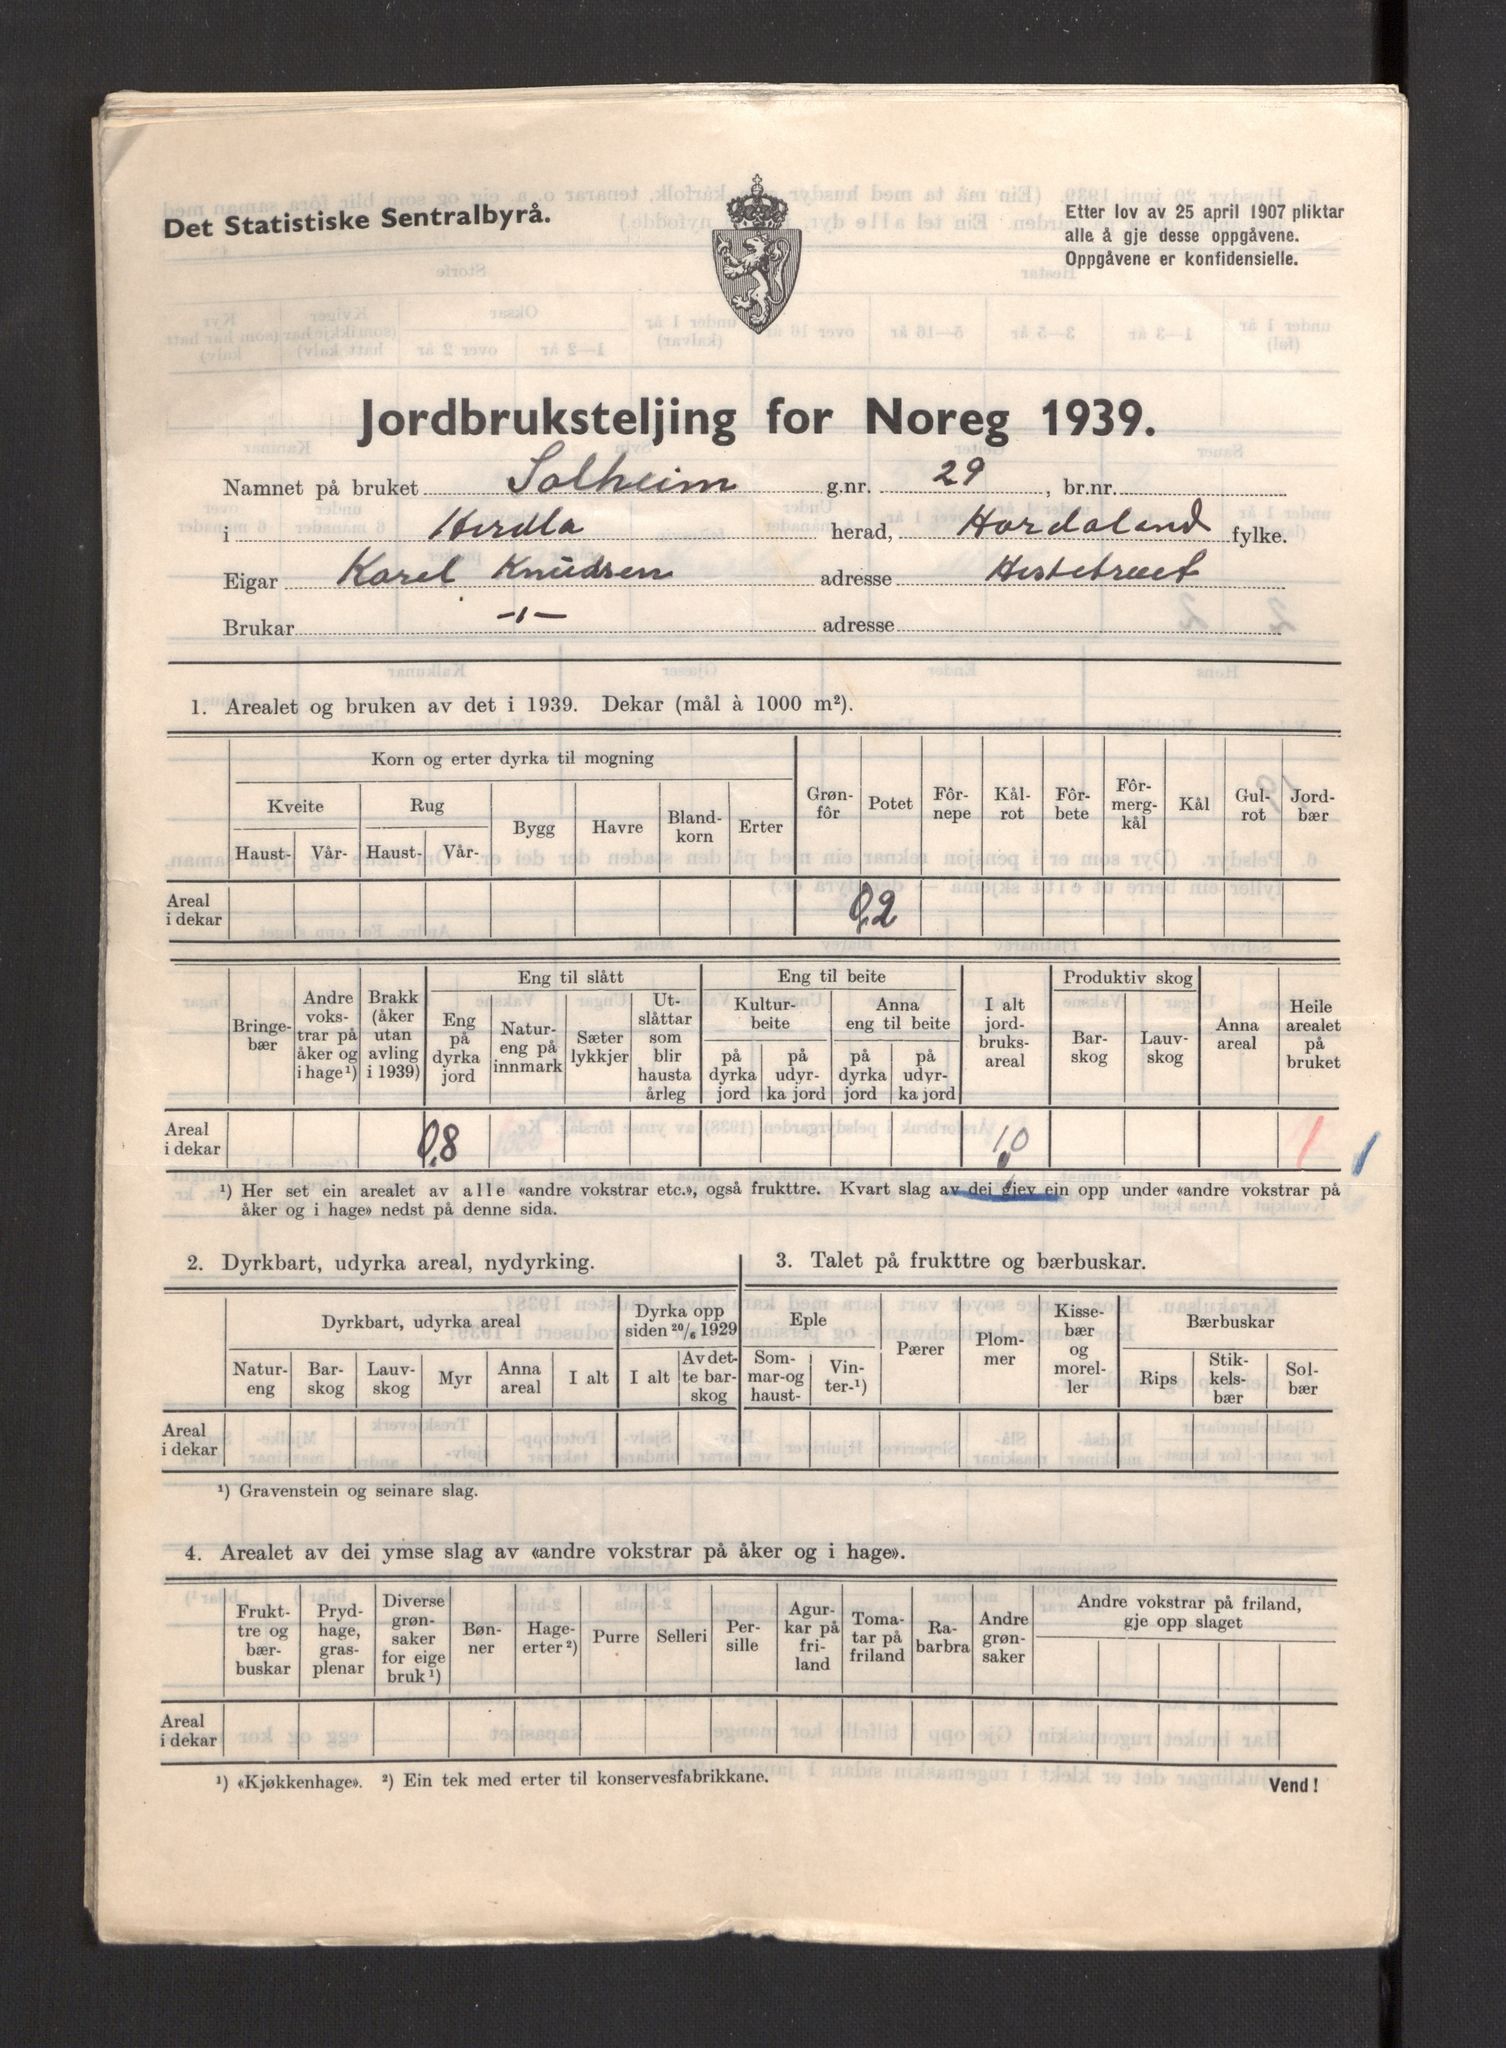 Det Statistiske Sentralbyrå.
Etter lov av 25 april 1907 pliktar
alle å gje desse oppgåvene.
Oppgåvene er konfidensielle.
Jordbruksteljing for Noreg 1939.
Namnet på bruket Solheim g.nr. 29, br.nr.
i Herdla herad, Hordaland fylke.
Eigar Karel Knudsen adresse Hestetræet
Brukar —ı— adresse
1. Arealet og bruken av det i 1939. Dekar (mål à 1000 m²).
Korn og erter dyrka til mogning
Kveite Rug Bygg Havre Bland-korn Erter Grøn-fôr Potet Fôr-nepe Kål-rot Fôr-bete Fôr-mergkål Kål Gul-rot Jord-bær
Haust- Vår- Haust- Vår-
Areal i dekar 0,2
Eng til slått Eng til beite Produktiv skog
Bringe-bær Andre vokstrar på åker og i hage¹) Brakk (åker utan avling i 1939) Eng på dyrka jord Natureng på innmark Sæter lykkjer Utslåttar som blir hausta årleg Kulturbeite Anna eng til beite I alt jordbruksareal Barskog Lauvskog Anna areal Heile arealet på bruket
på dyrka jord på udyrka jord på dyrka jord på udyrka jord
Areal i dekar 0,8 1,0 1 1
¹) Her set ein arealet av alle «andre vokstrar etc.», også frukttre. Kvart slag av dei gjev ein opp under «andre vokstrar på
åker og i hage» nedst på denne sida.
2. Dyrkbart, udyrka areal, nydyrking.
3. Talet på frukttre og bærbuskar.
Dyrkbart, udyrka areal Dyrka opp siden 20/6 1929 Eple Pærer Plommer Kissebær og moreller Bærbuskar
Natureng Barskog Lauvskog Myr Anna areal I alt I alt Av dette barskog Sommar-og haust- Vinter-¹) Rips Stikkelsbær Solbær
Areal i dekar
¹) Gravenstein og seinare slag.
4. Arealet av dei ymse slag av «andre vokstrar på åker og i hage».
Frukttre og bærbuskar Prydhage, grasplenar Diverse grønsaker for eige bruk¹) Bønner Hageerter²) Purre Selleri Persille Agurkar på friland Tomatar på friland Rabarbra Andre grønsaker Andre vokstrar på friland, gje opp slaget
Areal i dekar
¹) «Kjøkkenhage». ²) Ein tek med erter til konservesfabrikkane.
Vend!